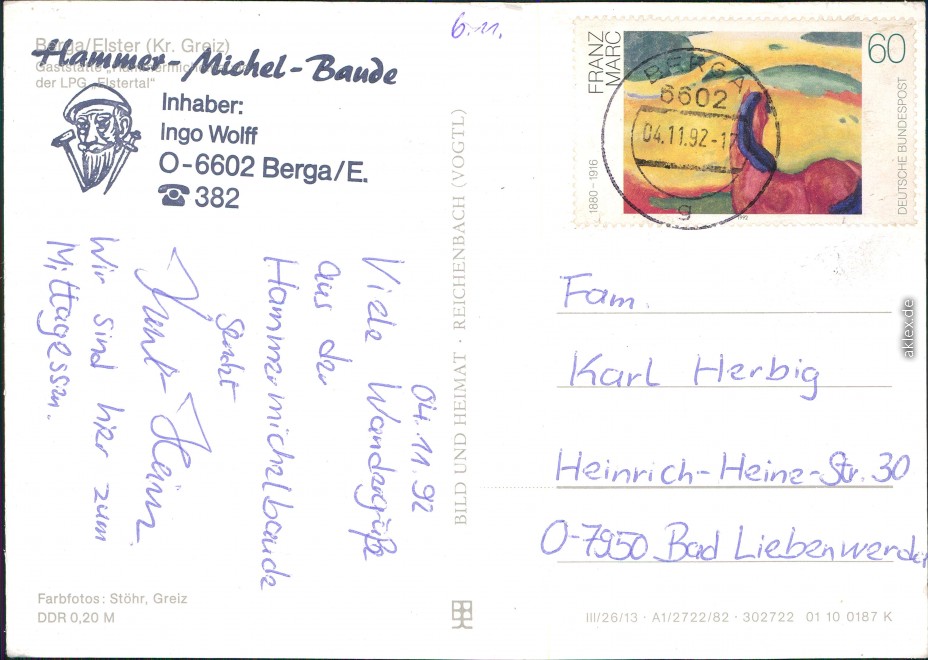 6.11.
Berga/Elster (Kr. Greiz)
der LPG „Elstertal"
Hammer-Michel-Baude
Inhaber:
Ingo Wolff
O-6602 Berga/E.
☎ 382
04.11.92
Viele Wandergrüße
aus der
Hammermichelbaude
sendet
Wir sind hier zum
Mittagessen.
Farbfotos: Stöhr, Greiz
DDR 0,20 M
BILD UND HEIMAT · REICHENBACH (VOGTL)
FRANZ
MARC
1880–1916
60
DEUTSCHE BUNDESPOST
1992
BERGA
6602
04.11.92-17
g
Fam.
Karl Herbig
Heinrich-Heine-Str. 30
O-7950 Bad Liebenwerda
III/26/13 · A1/2722/82 · 302722 01 10 0187 K
aklex.de